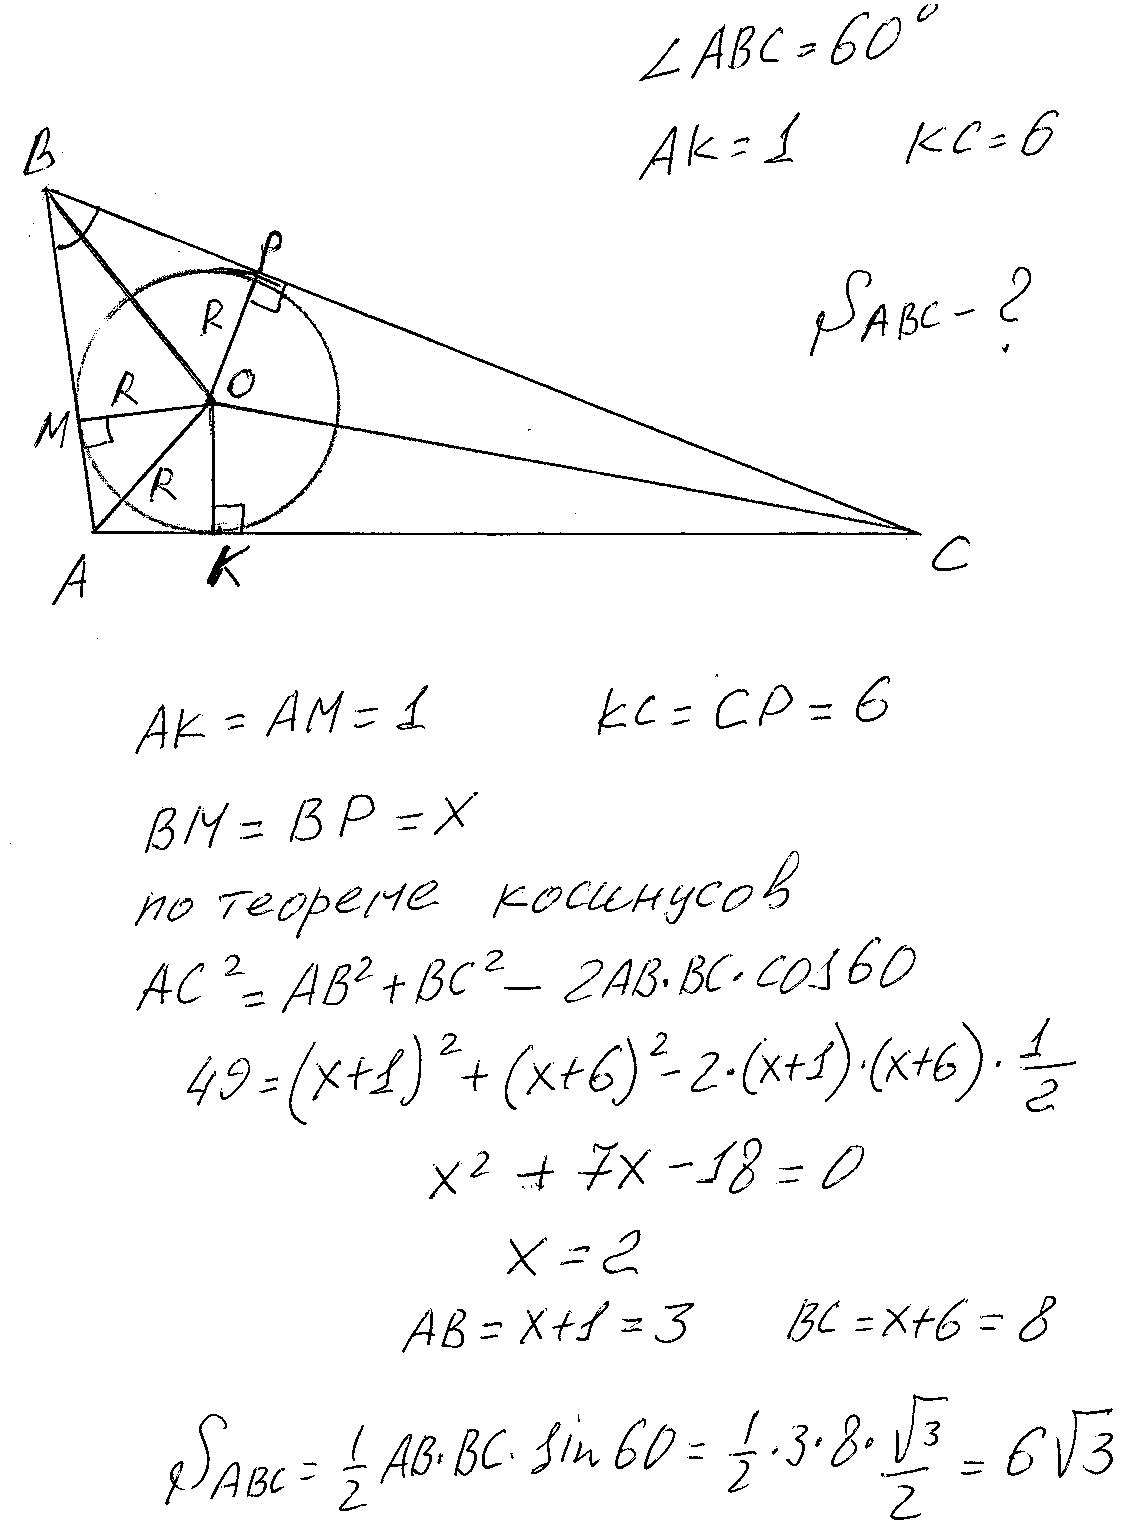 ∠ABC = 60°
AK = 1 KC = 6
B
P
R
S ABC - ?
R
O
M
R
A
K
C
AK = AM = 1 KC = CP = 6
BM = BP = X
по теореме косинусов
AC² = AB² + BC² - 2AB·BC·cos60
49 = (x+1)² + (x+6)² - 2·(x+1)·(x+6)·1/2
x² + 7x - 18 = 0
x = 2
AB = x+1 = 3 BC = x+6 = 8
S ABC = 1/2 AB·BC·sin60 = 1/2·3·8·√3/2 = 6√3